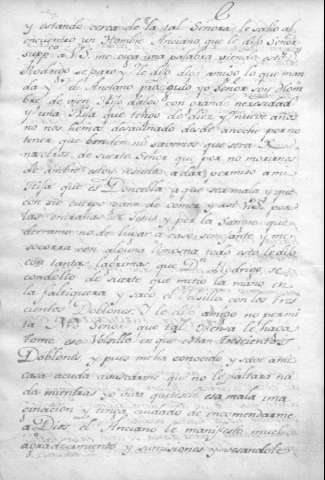 y estando cerca de la tal Señora, le salio al
encuentro un Hombre Anciano que le dijo Señor
supp.co a V.S. me oiga una palabra
Rodrigo se paro y le dijo diga amigo lo que man
da y el Anciano prosiguio yo Señor soy Hom
bre de bien hijo dalgo con grande necesidad
y una hija que tengo de diez y nueve años
no nos hemos desaiunado desde anoche por no
tener que
de suerte Señor que por no morirnos
de ambre estoy resuelto a dar permiso a mi
Hija que es Doncella a que sea mala y que
con su cuerpo gane de comer y assi por
las entrañas de Jesus y por la Sangre que
derramo no de lugar a caso semejante y me
socorra con alguna limosna todo esto le dijo
con tantas lagrimas que Dn. Rodrigo se
condolio de suerte que metio la mano en
la faltriquera y saco el bolsillo con los tres
cientos Doblones, y le dijo amigo no permi
ta Dios Señor que tal ofensa le haga
tome ese bolsillo en que estan trescientos
Doblones y pues me ha conocido y sabe mi
casa acuda a buscarme que no le faltara na
da mientras yo viva quitese esa mala ima
ginacion y tenga cuidado de encomendarme
a Dios el Anciano le manifesto mucho
agradecimiento y sumisiones y besandole